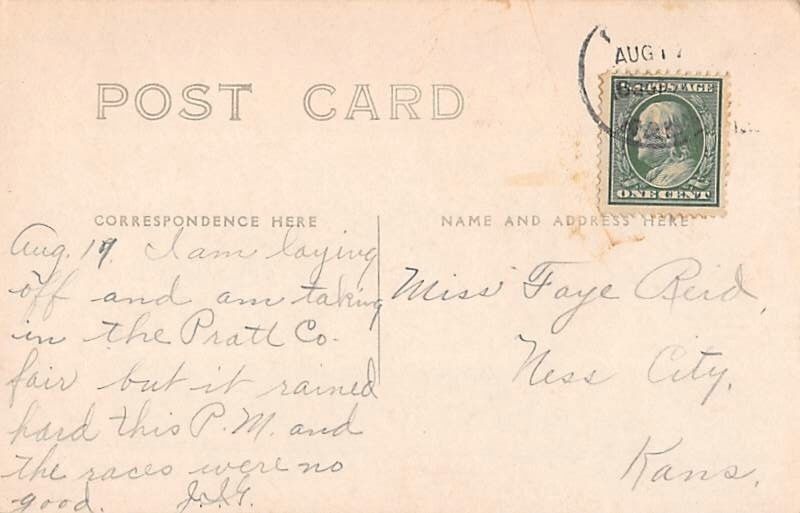 AUG 17
POST CARD
POSTAGE
ONE CENT
CORRESPONDENCE HERE
NAME AND ADDRESS HERE
Aug. 17. I am laying
off and am taking
in the Pratt Co.
fair but it rained
hard this P.M. and
the races were no
good. J.S.G.
Miss Faye Reid,
Ness City,
Kans.